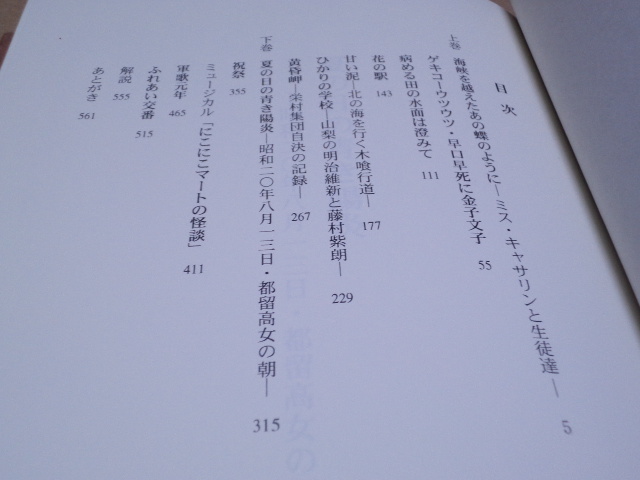 目次
上巻 海峡を越えたあの蝶のように―ミス・キャサリンと生徒達― 5
ゲキコーウツウツ・早口早死に金子文子 55
病める田の水面は澄みて 111
花の駅 143
甘い泥―北の海を行く木喰行道― 177
ひかりの学校―山梨の明治維新と藤村紫朗― 229
黄昏岬―栄村集団自決の記録― 267
下巻 夏の日の青き陽炎―昭和二〇年八月一三日・都留高女の朝― 315
祝祭 355
ミュージカル「にこにこマートの怪談」 411
軍歌元年 465
ふれあい交番 515
解説 555
あとがき 561